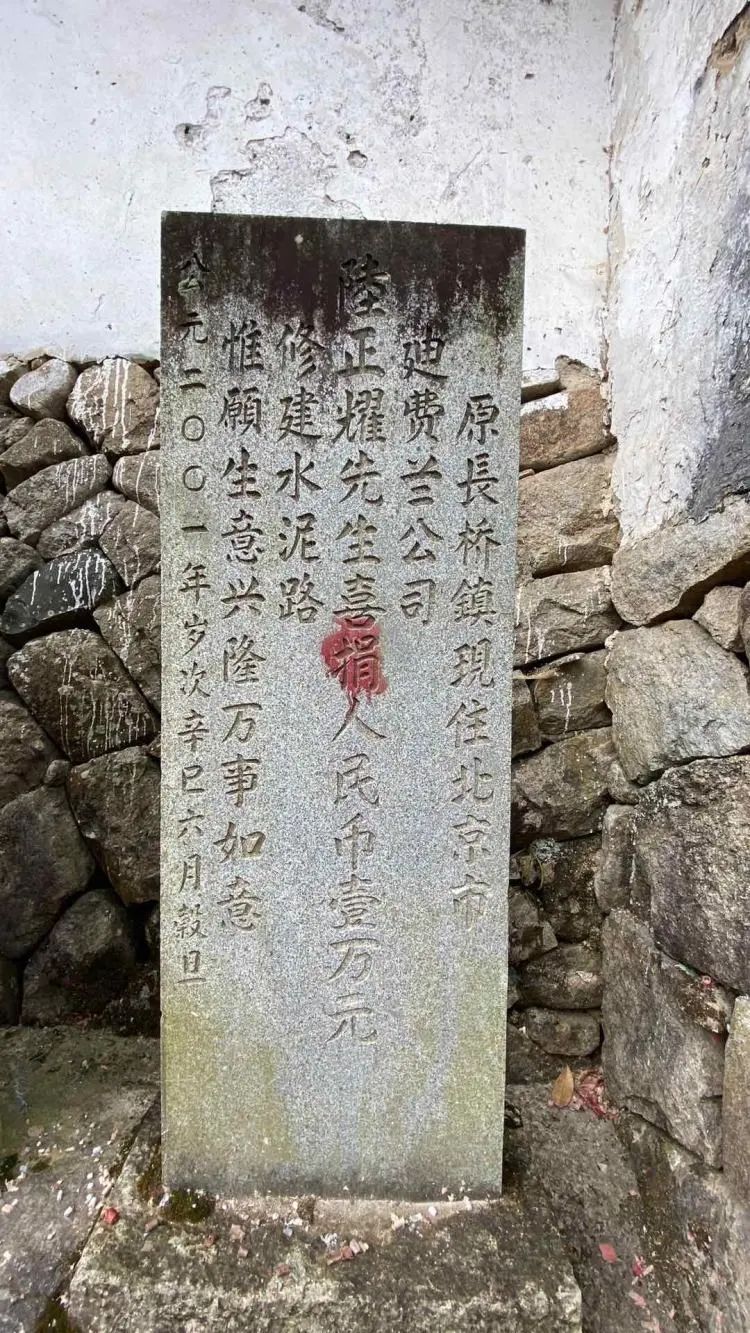 原長桥鎮現住北京市
廸费兰公司
陸正耀先生喜捐人民币壹万元
修建水泥路
惟願生意兴隆万事如意
公元二〇〇一年岁次辛巳六月穀旦